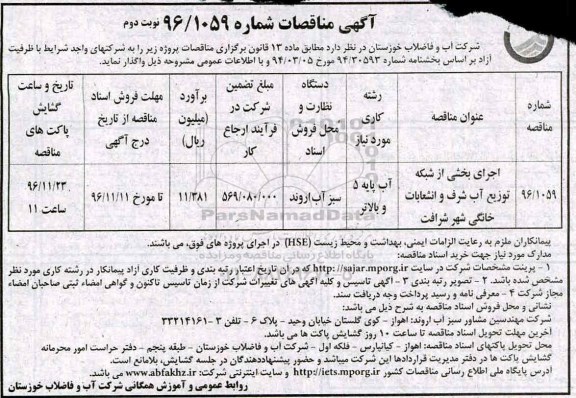 آگهی مناقصات شماره ۹۶/۱۰۵۹ نوبت دوم
شرکت آب و فاضلاب خوزستان در نظر دارد مطابق ماده ۱۳ قانون برگزاری مناقصات پروژه زیر را به شرکتهای واجد شرایط با ظرفیت
آزاد بر اساس بخشنامه شماره ۹۴/۳۰۵۹۳ مورخ ۹۴/۰۳/۰۵ و با اطلاعات عمومی مشروحه ذیل واگذار نماید.
شماره مناقصه
عنوان مناقصه
رشته کاری مورد نیاز
دستگاه نظارت و محل فروش اسناد
مبلغ تضمین شرکت در فرآیند ارجاع کار
برآورد (میلیون ریال)
مهلت فروش اسناد مناقصه از تاریخ درج آگهی
تاریخ و ساعت گشایش پاکت های مناقصه
۹۶/۱۰۵۹
اجرای بخشی از شبکه توزیع آب شرف و انشعابات خانگی شهر شرافت
آب پایه ۵ و بالاتر
سبز آب اروند
۵۶۹/۰۸۰/۰۰۰
۱۱/۳۸۱
تا مورخ ۹۶/۱۱/۱۱
۹۶/۱۱/۲۳ ساعت ۱۱
ParsNamadData
پایگاه اطلاع رسانی مناقصه ومزایده
پیمانکاران ملزم به رعایت الزامات ایمنی، بهداشت و محیط زیست (HSE) در اجرای پروژه های فوق، می باشند.
مدارک مورد نیاز جهت خرید اسناد مناقصه:
۱ - پرینت مشخصات شرکت در سایت http://sajar.mporg.ir که در آن تاریخ اعتبار رتبه بندی و ظرفیت کاری آزاد پیمانکار در رشته کاری مورد نظر
مشخص شده باشد. ۲ - تصویر رتبه بندی ۳ - آگهی تاسیس و کلیه آگهی های تغییرات شرکت از زمان تاسیس تاکنون و گواهی امضاء ثبتی صاحبان امضاء
مجاز شرکت ۴ - معرفی نامه و رسید پرداخت وجه دریافت سند.
نشانی و محل فروش اسناد مناقصه به شرح ذیل می باشد:
شرکت مهندسین مشاور سبز آب اروند: اهواز - کوی گلستان خیابان وحید - پلاک ۶ - تلفن ۳ - ۳۳۲۱۴۱۶۱
آخرین مهلت تحویل اسناد مناقصه تا ساعت ۱۰ روز گشایش پاکت ها می باشد.
محل تحویل پاکتهای اسناد مناقصه: اهواز - کیانپارس - فلکه اول - شرکت آب و فاضلاب خوزستان - طبقه پنجم - دفتر حراست امور محرمانه
گشایش پاکت ها در دفتر مدیریت قراردادها این شرکت میباشد و حضور پیشنهاددهندگان در جلسه گشایش، بلامانع است.
آدرس پایگاه ملی اطلاع رسانی مناقصات کشور http://iets.mporg.ir و سایت اینترنتی شرکت: www.abfakhz.ir می باشد.
روابط عمومی و آموزش همگانی شرکت آب و فاضلاب خوزستان